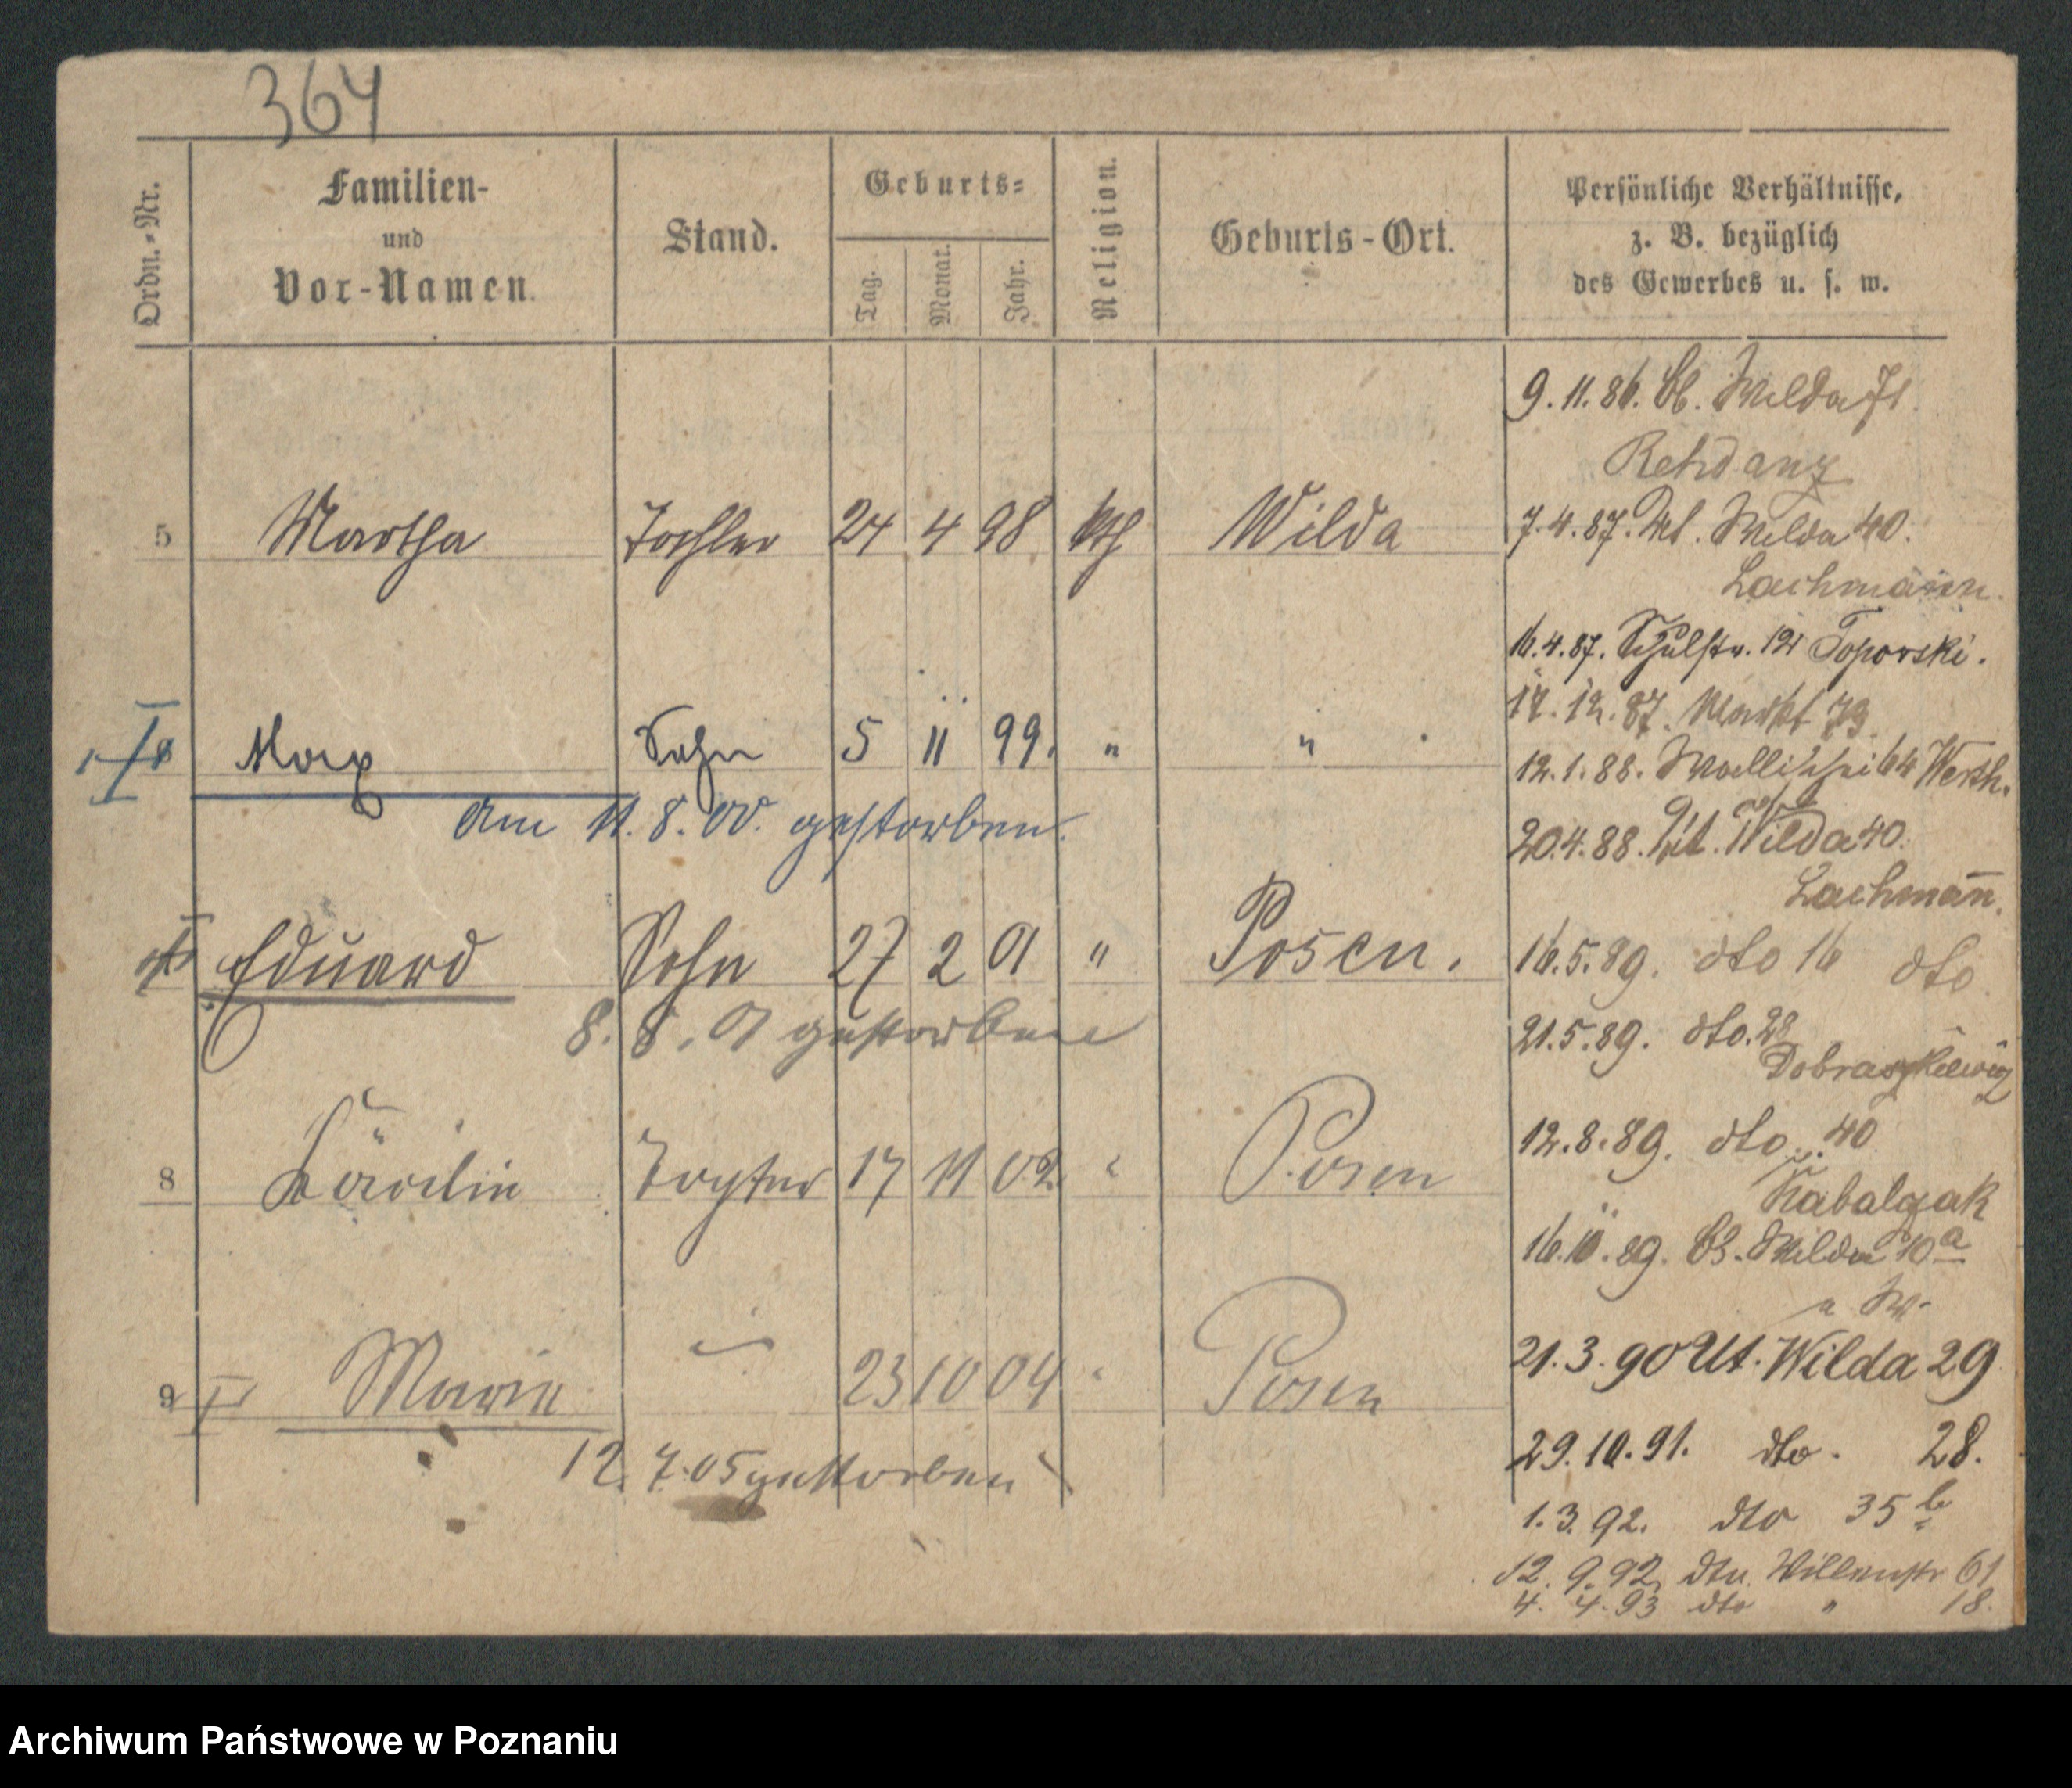 364
Ordn.-Nr.
Familien-
und
Vor-Namen.
Stand.
Geburts-
Tag.
Monat.
Jahr.
Religion.
Geburts-Ort.
Persönliche Verhältnisse,
z. B. bezüglich
des Gewerbes u. s. w.
9.11.86. Wilda 71
Rehdanz
5 Martha Tochter 24 4 98 kth Wilda
7.4.87. Ut. Wilda 40.
Lachmann.
16.4.87. Schulstr. 12 Toporski.
17.12.87. Markt 73
Max Sohn 5 11 99. " "
12.1.88. Wallischei 64 Werth.
am 11. 8. 00. gestorben.
20.4.88. Ut. Wilda 40.
Lachmann.
Eduard Sohn 27 2 01 " Posen.
16.5.89. dto 16 dto
8. 8. 01 gestorben
21.5.89. dto. 28
12.8.89. dto. 40
8 Tochter 17 11 02 " Posen
Kabalczak
16.10.89. Ob. Wilda 10a
21.3.90 Ut. Wilda 29
9 Marie 23 10 04 " Posen
29.10.91. dto. 28.
12. 7. 05 gestorben
1.3.92. dto 35b
12. 9. 92. dto. 61
4. 4. 93 dto " 18.
Archiwum Państwowe w Poznaniu